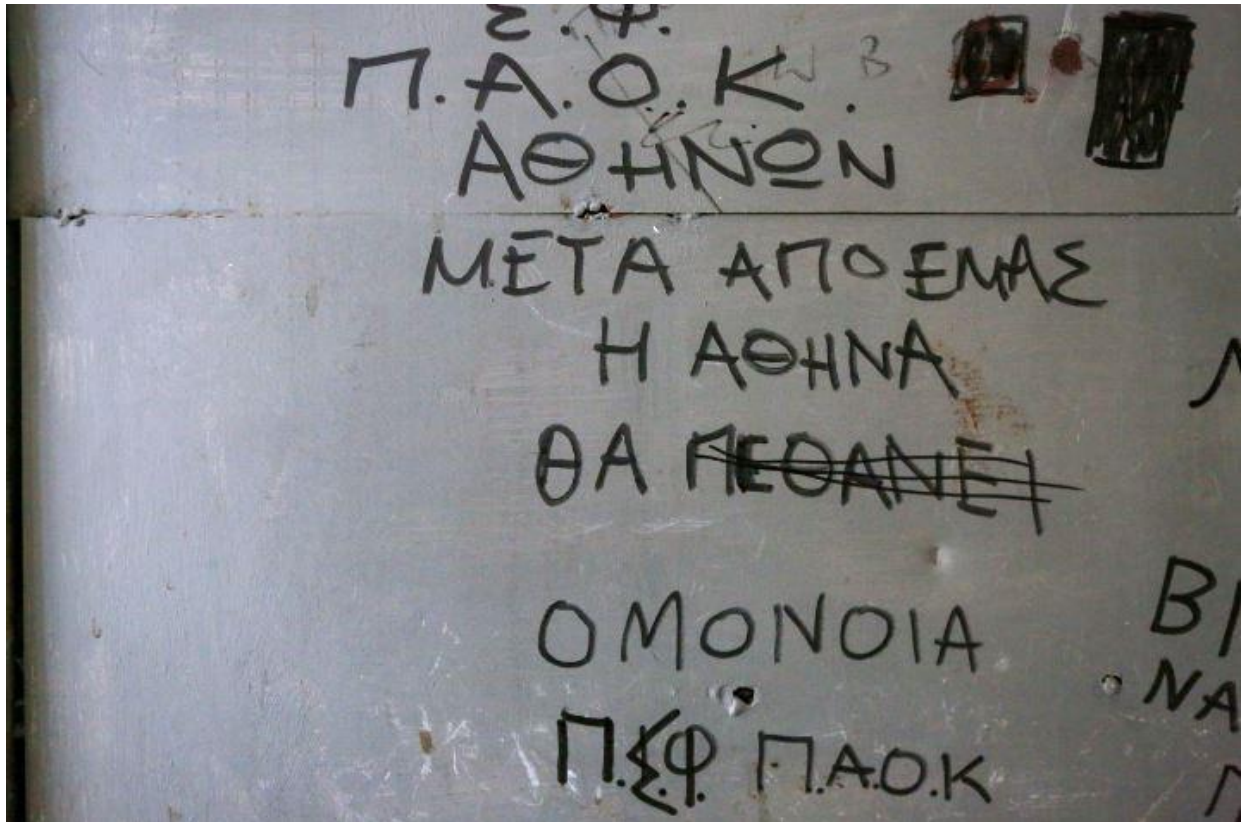 Σ.Φ.
Π.Α.Ο.Κ.
ΑΘΗΝΩΝ
ΜΕΤΑ ΑΠΟ ΕΜΑΣ
Η ΑΘΗΝΑ
ΘΑ ΠΕΘΑΝΕΙ
ΟΜΟΝΟΙΑ
ΝΑ
Π.Σ.Φ. Π.Α.Ο.Κ